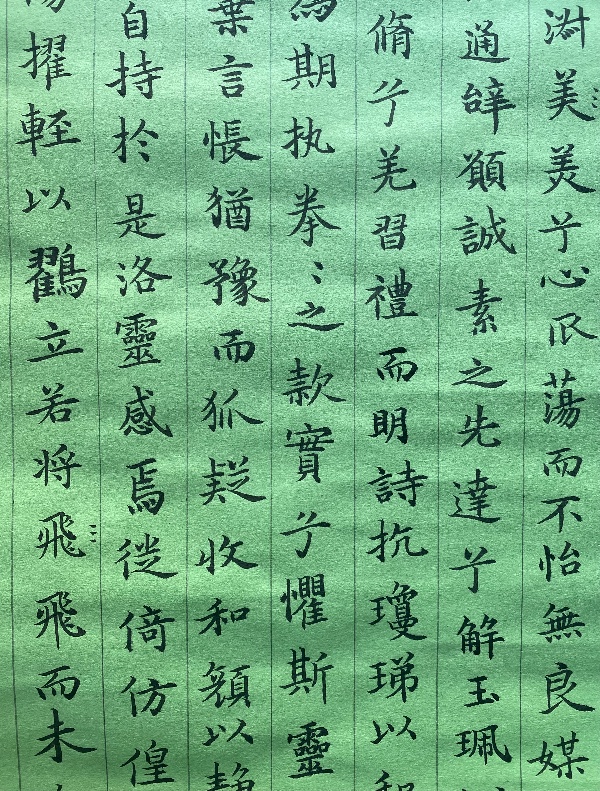 淑美羙兮心蕩而不怡無良媒
通辝願誠素之先達兮解玉珮
脩兮羌習禮而明詩抗瓊珶以和
為期执拳〻之款實兮懼斯靈
棄言悵猶豫而狐疑收和顏以静
自持於是洛靈感焉徙倚仿偟
擢輕以鶴立若将飛飛而未